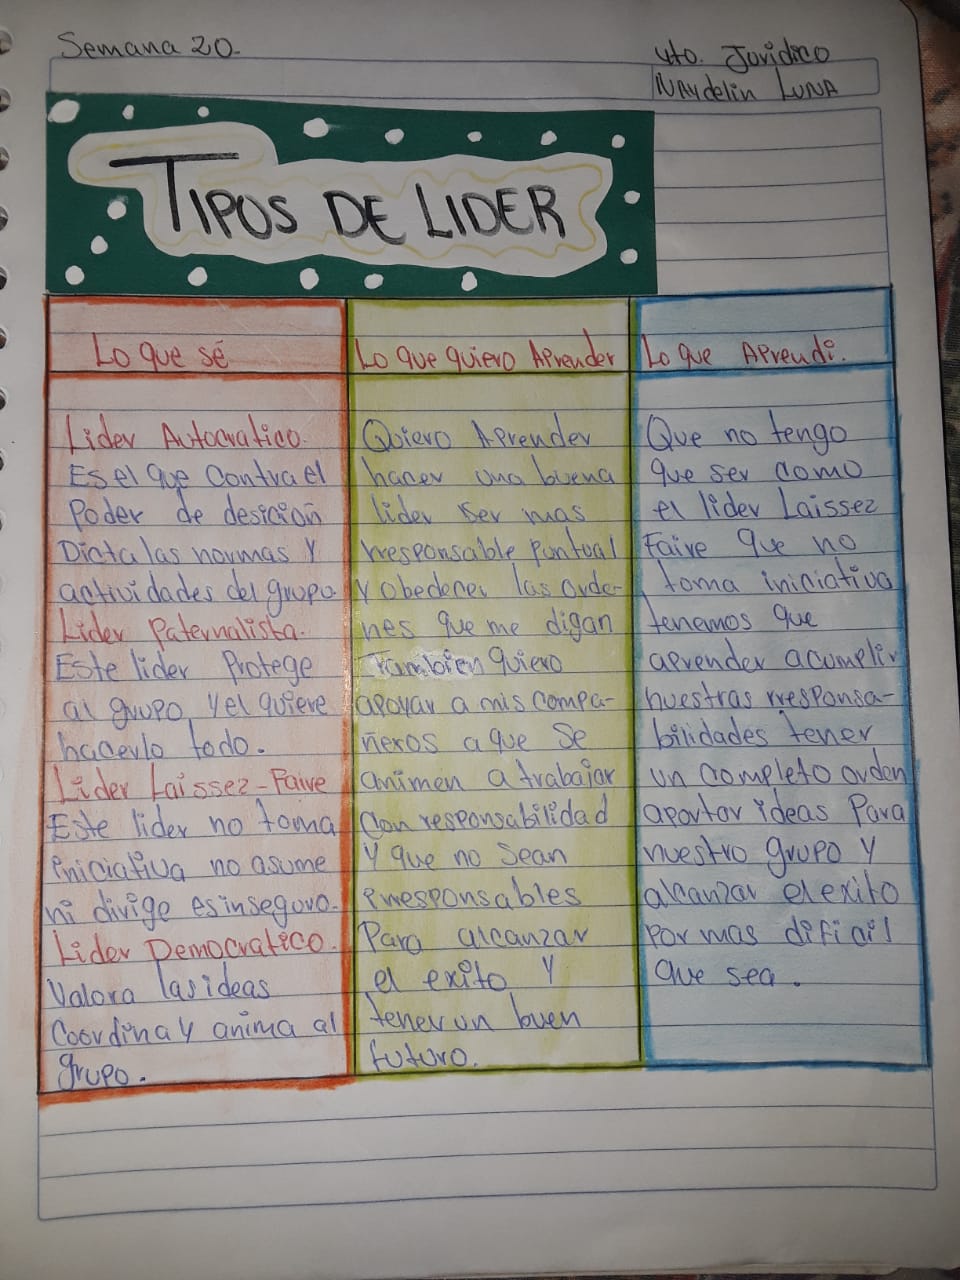 Semana 20.
4to. Juridico
NAYdelin LUNA
TIPOS DE LIDER
Lo que sé
Lider Autocratico.
Es el que contra el
Poder de desicion
Dicta las normas Y
actividades del grupo.
Lider Paternalista.
Este lider Protege
al grupo, Y el quiere
hacerlo todo.
Lider Laissez-Faire
Este lider no toma
iniciativa no asume
ni dirige es inseguro.
Lider Democratico.
Valora las ideas
Coordina y anima al
grupo.
Lo que quiero Aprender
Quiero Aprender
hacer una buena
lider ser mas
rresponsable Puntual
Y obedener las orde-
nes que me digan
Tambien quiero
apoyar a mis compa-
ñeros a que se
animen a trabajar
Con responsabilidad
Y que no sean
irresponsables
Para alcanzar
el exito Y
tener un buen
futuro.
Lo que Aprendi.
Que no tengo
que ser como
el lider Laissez
Faire que no
toma iniciativa
tenemos que
aprender a cumplir
nuestras rresponsa-
bilidades tener
un completo orden
aportar ideas Para
nuestro grupo Y
alcanzar el exito
Por mas dificil
que sea.